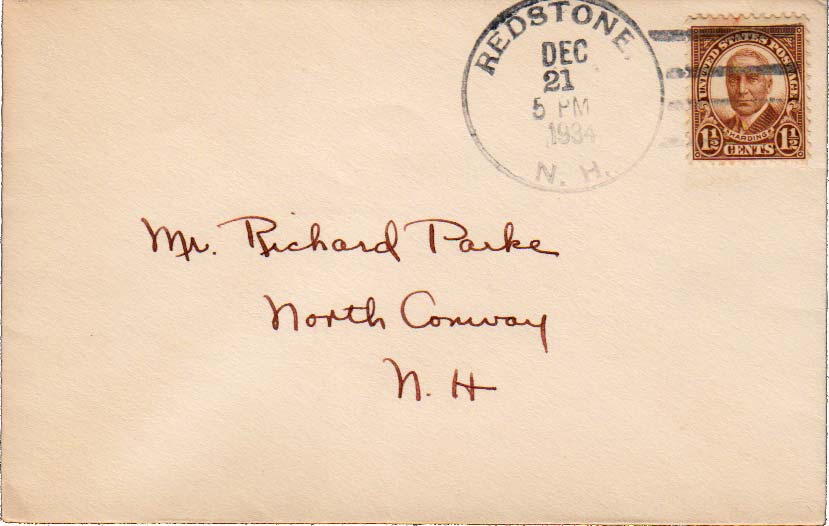 REDSTONE,
DEC
21
5 PM
1934
N. H.
UNITED STATES POSTAGE
HARDING
1½ CENTS 1½
Mr. Richard Parke
North Conway
N. H